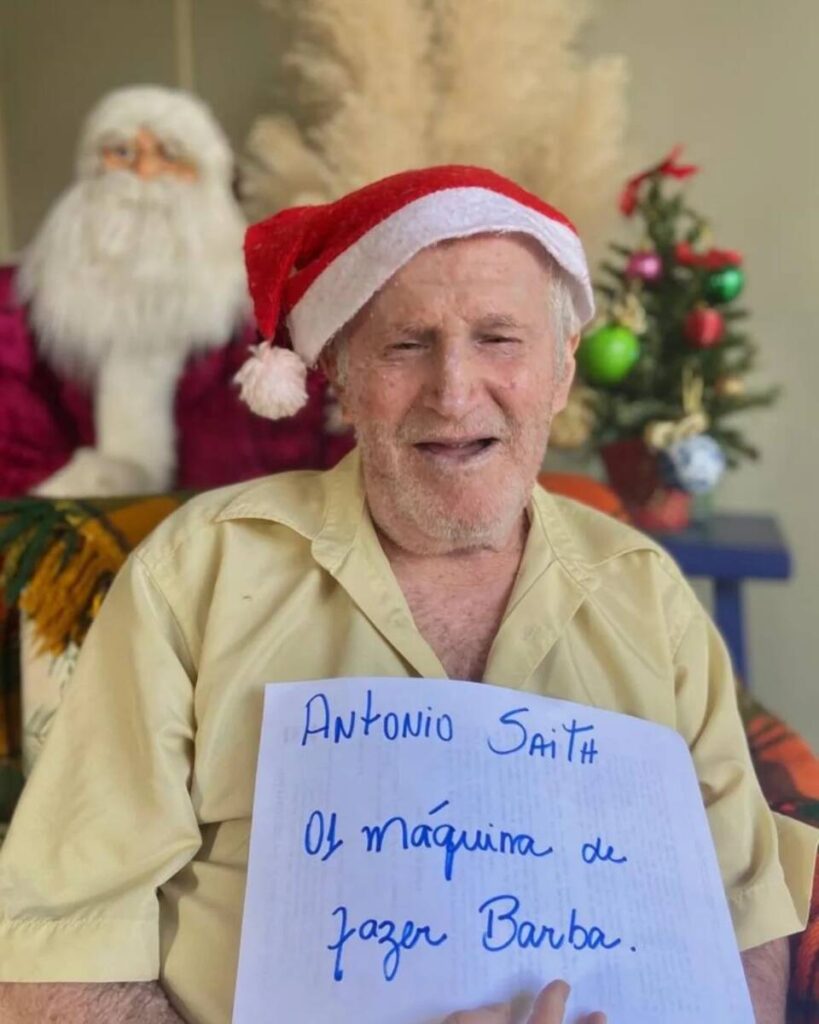 Antonio Saith
01 máquina de
fazer Barba.